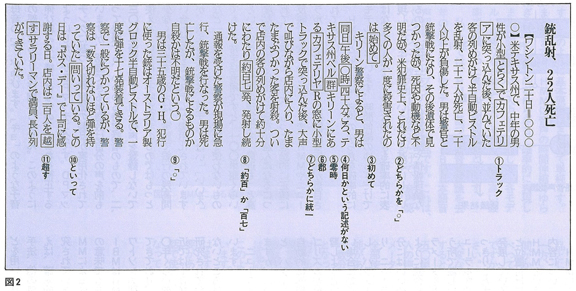 銃乱射、22人死亡
【ワシントン二十日＝〇〇
〇】米テキサス州で、中年の男
が小型とらっくでカフェテリ
アに突っ込んだ後、並んでいた
客の列めがけて半自動ピストル
を乱射、二十二人が死亡、二十
人以上が負傷した。男は警官と
銃撃戦になり、その後遺体で見
つかったが、死因や動機など不
明だが、米犯罪史上、これだけ
多くの人が一度に殺傷されたの
は始めて。
キリーン警察によると、男は
同日午後〇時四十分ごろ、テ
キサス州ベル群キリーンにあ
るカフェテリヤRの窓に小型
トラックで突っ込んだ後、大声
で叫びながら店内に入り、たま
たまぶつかった客を射殺。つい
で店内の客の列めがけて約十分
にわたり約百七発、発射し続
けた。
通報を受けた警察が現場に急
行、銃撃戦を行なった。男は死
亡したが、銃撃戦によるものか
自殺かは不明だという〇
男は三十五歳のG・H。犯行
に使った銃はオーストラリア製
グロック半自動ピストルで、一
度に弾を十七発装着できる。警
察で一般につかっているが、警
察は「数え切れないほど弾を持
っていた」問いっている。この
日は「ボス・デー」で上司に感
謝する日。店内は二百人を越
すサラリーマンで満員、長い列
ができていた。
①トラック
②どちらかを「。」
③初めて
④何日かという記述がない
⑤零時
⑥郡
⑦どちらかに統一
⑧「約百」か「百七」
⑨「。」
⑩といって
⑪超す
図2